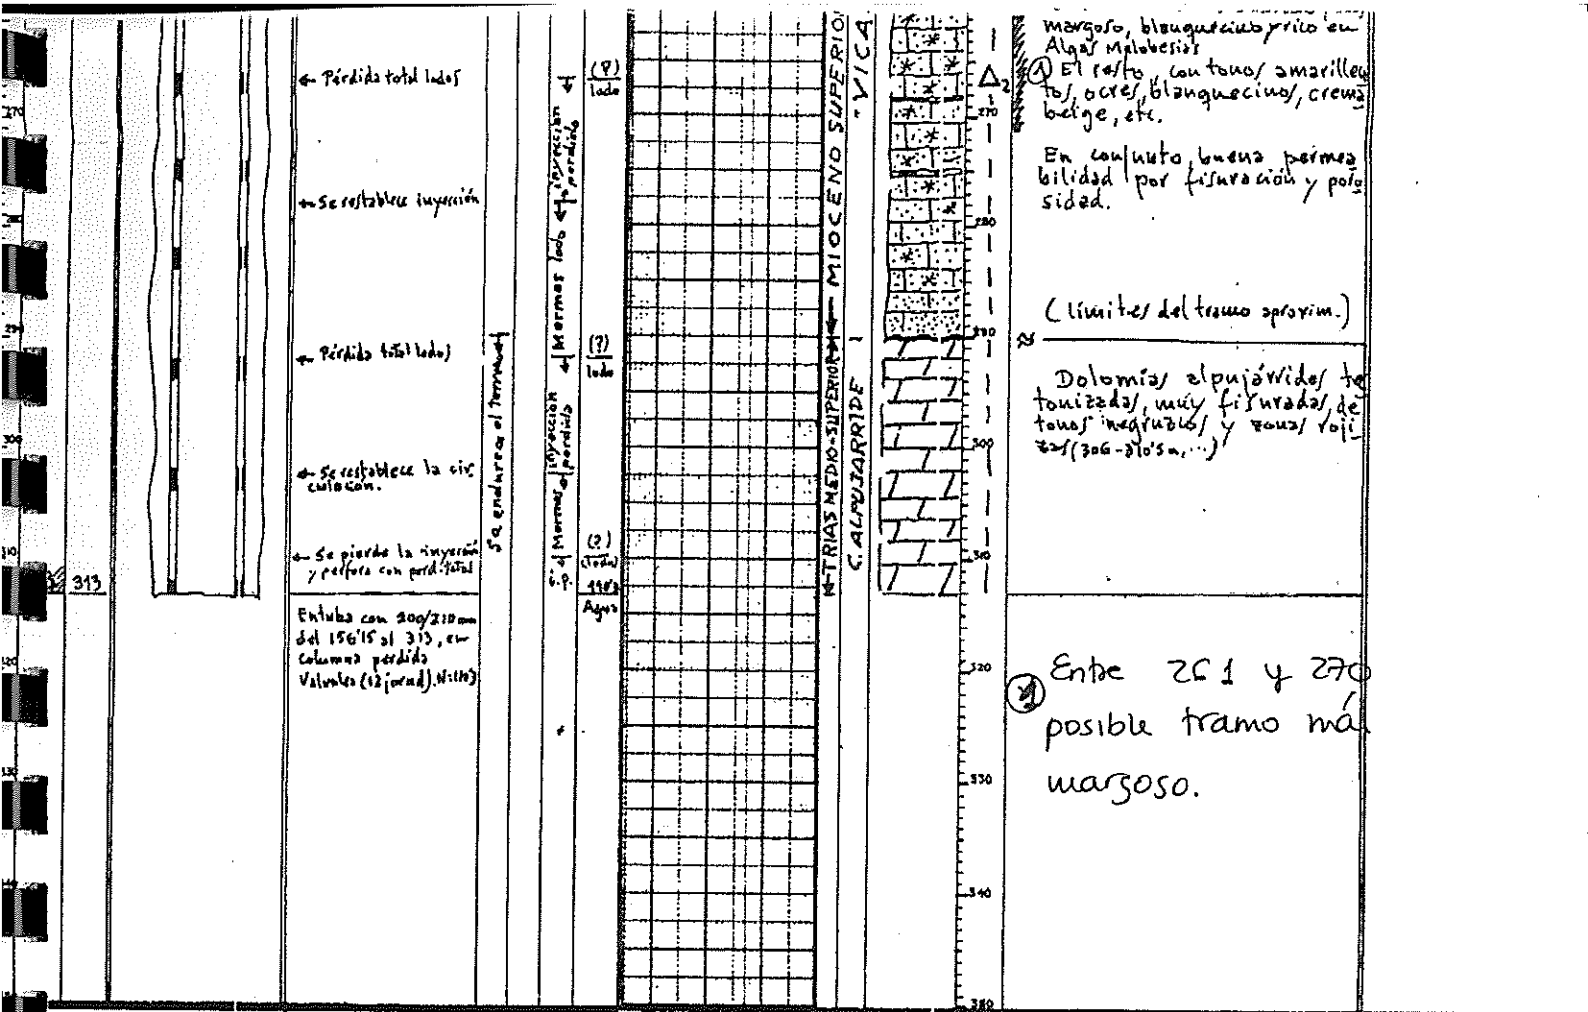 270
290
300
310
320
330
340
313
← Pérdida total lodos
← Se restablece inyección
← Pérdida total lodos
← Se restablece la cir
culación.
← Se pierde la inyección
y perfora con perd. total
Entuba con 200/210 mm
del 156'15 al 313, en
columna perdida
Se endurece el terreno
Mermas lodo
inyección
perdida
Mermas
inyección
perdida
(?)
lodo
(?)
lodo
(?)
(lodo)
Agua
MIOCENO SUPERIOR
TRIAS MEDIO-SUPERIOR
"VICA
C. ALPUJARRIDE
Δ2
270
280
290
300
310
320
330
340
350
margoso, blanquecino y rico en
Algas Melobesias
① El resto, con tonos amarillen
tos, ocres, blanquecinos, crema
beige, etc.
En conjunto, buena permea
bilidad por fisuración y poro
sidad.
(límites del tramo aproxim.)
≈
Dolomías alpujárrides te
tonizadas, muy fisuradas, de
tonos negruzcos y zonas roji
zas (306-310'5 m, ...)
① Entre 261 y 270
posible tramo má
margoso.